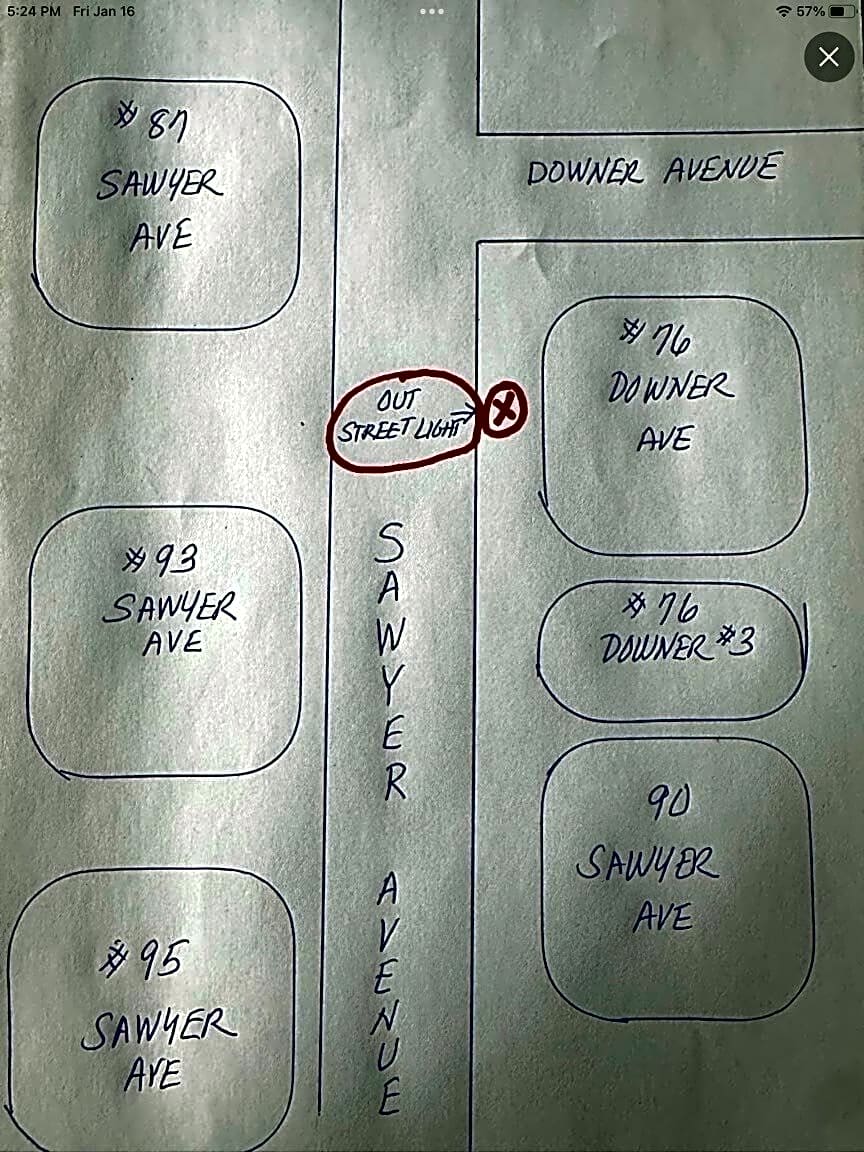 5:24 PM Fri Jan 16
57%
# 87
SAWYER
AVE
DOWNER AVENUE
# 76
DOWNER
AVE
OUT
STREET LIGHT
X
# 93
SAWYER
AVE
# 76
DOWNER #3
SAWYER AVENUE
90
SAWYER
AVE
# 95
SAWYER
AVE